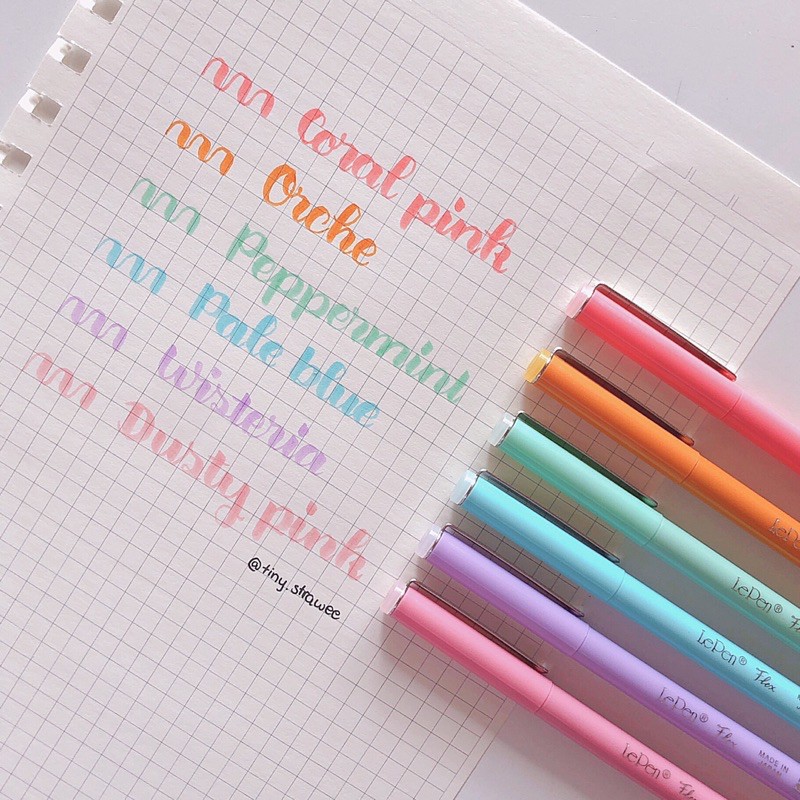 Coral pink
Orche
Peppermint
Pale blue
Wisteria
Dusty pink
@tiny.strawec
LePen
LePen® Fl
LePen® Flex
LePen® Flex
MADE IN
JAPAN
LePen® Fle